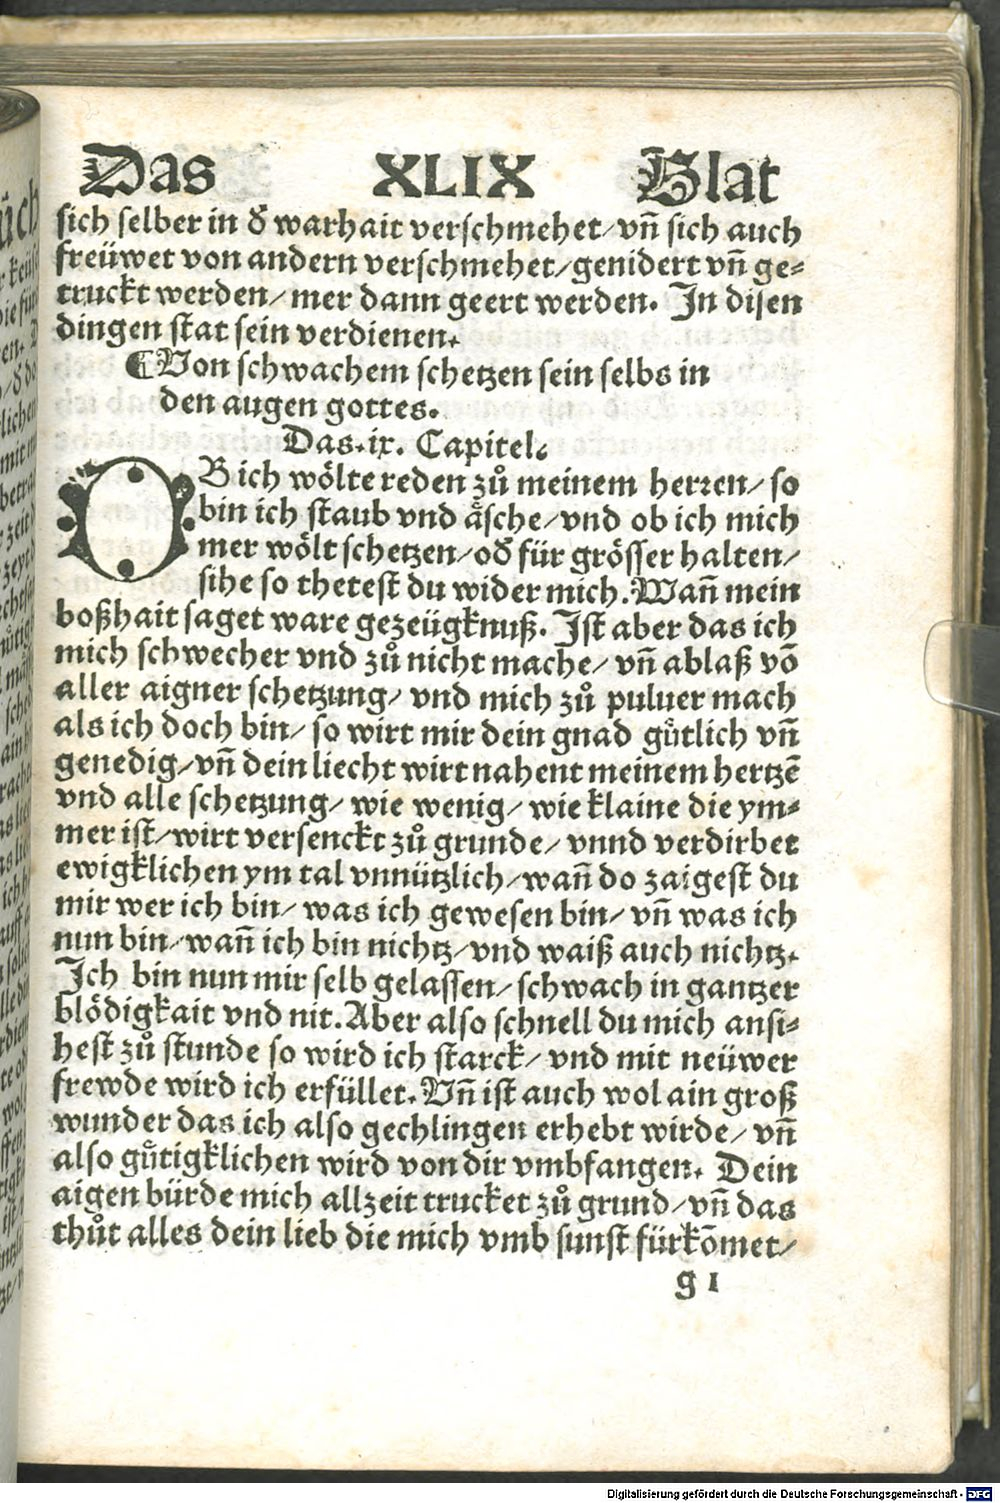 Das XLIX Blat
sich selber in d̕ warhait verschmehet/ vn̄ sich auch
freüwet von andern verschmehet/ genidert vn̄ ge⸗
truckt werden/ mer dann geert werden. In disen
dingen stat sein verdienen.
¶Von schwachem schetzen sein selbs in
den augen gottes.
Das.ix. Capitel.
OB ich wölte reden zů meinem herꝛen/ so
bin ich staub vnd äsche/ vnd ob ich mich
mer wölt schetzen/ od̕ für grösser halten/
sihe so thetest du wider mich. Wan̄ mein
boßhait saget ware gezeügknuß. Ist aber das ich
mich schwecher vnd zů nicht mache/ vn̄ ablaß vō
aller aigner schetzung/ vnd mich zů puluer mach
als ich doch bin/ so wirt mir dein gnad gůtlich vn̄
genedig/ vn̄ dein liecht wirt nahent meinem hertzē
vnd alle schetzung/ wie wenig/ wie klaine die ym⸗
mer ist/ wirt versenckt zů grunde/ vnnd verdirbet
ewigklichen ym tal vnnützlich/ wan̄ do zaigest du
mir wer ich bin/ was ich gewesen bin/ vn̄ was ich
nun bin/ wan̄ ich bin nichtz/ vnd waiß auch nichtz.
Ich bin nun mir selb gelassen/ schwach in gantzer
blödigkait vnd nit. Aber also schnell du mich ansi⸗
hest zů stunde so wird ich starck/ vnd mit neüwer
frewde wird ich erfüllet. Vn̄ ist auch wol ain groß
wunder das ich also gechlingen erhebt wirde/ vn̄
also gůtigklichen wird von dir vmbfangen. Dein
aigen bürde mich allzeit trucket zů grund/ vn̄ das
thůt alles dein lieb die mich vmb sunst fürkōmet/
g 1
Digitalisierung gefördert durch die Deutsche Forschungsgemeinschaft - DFG